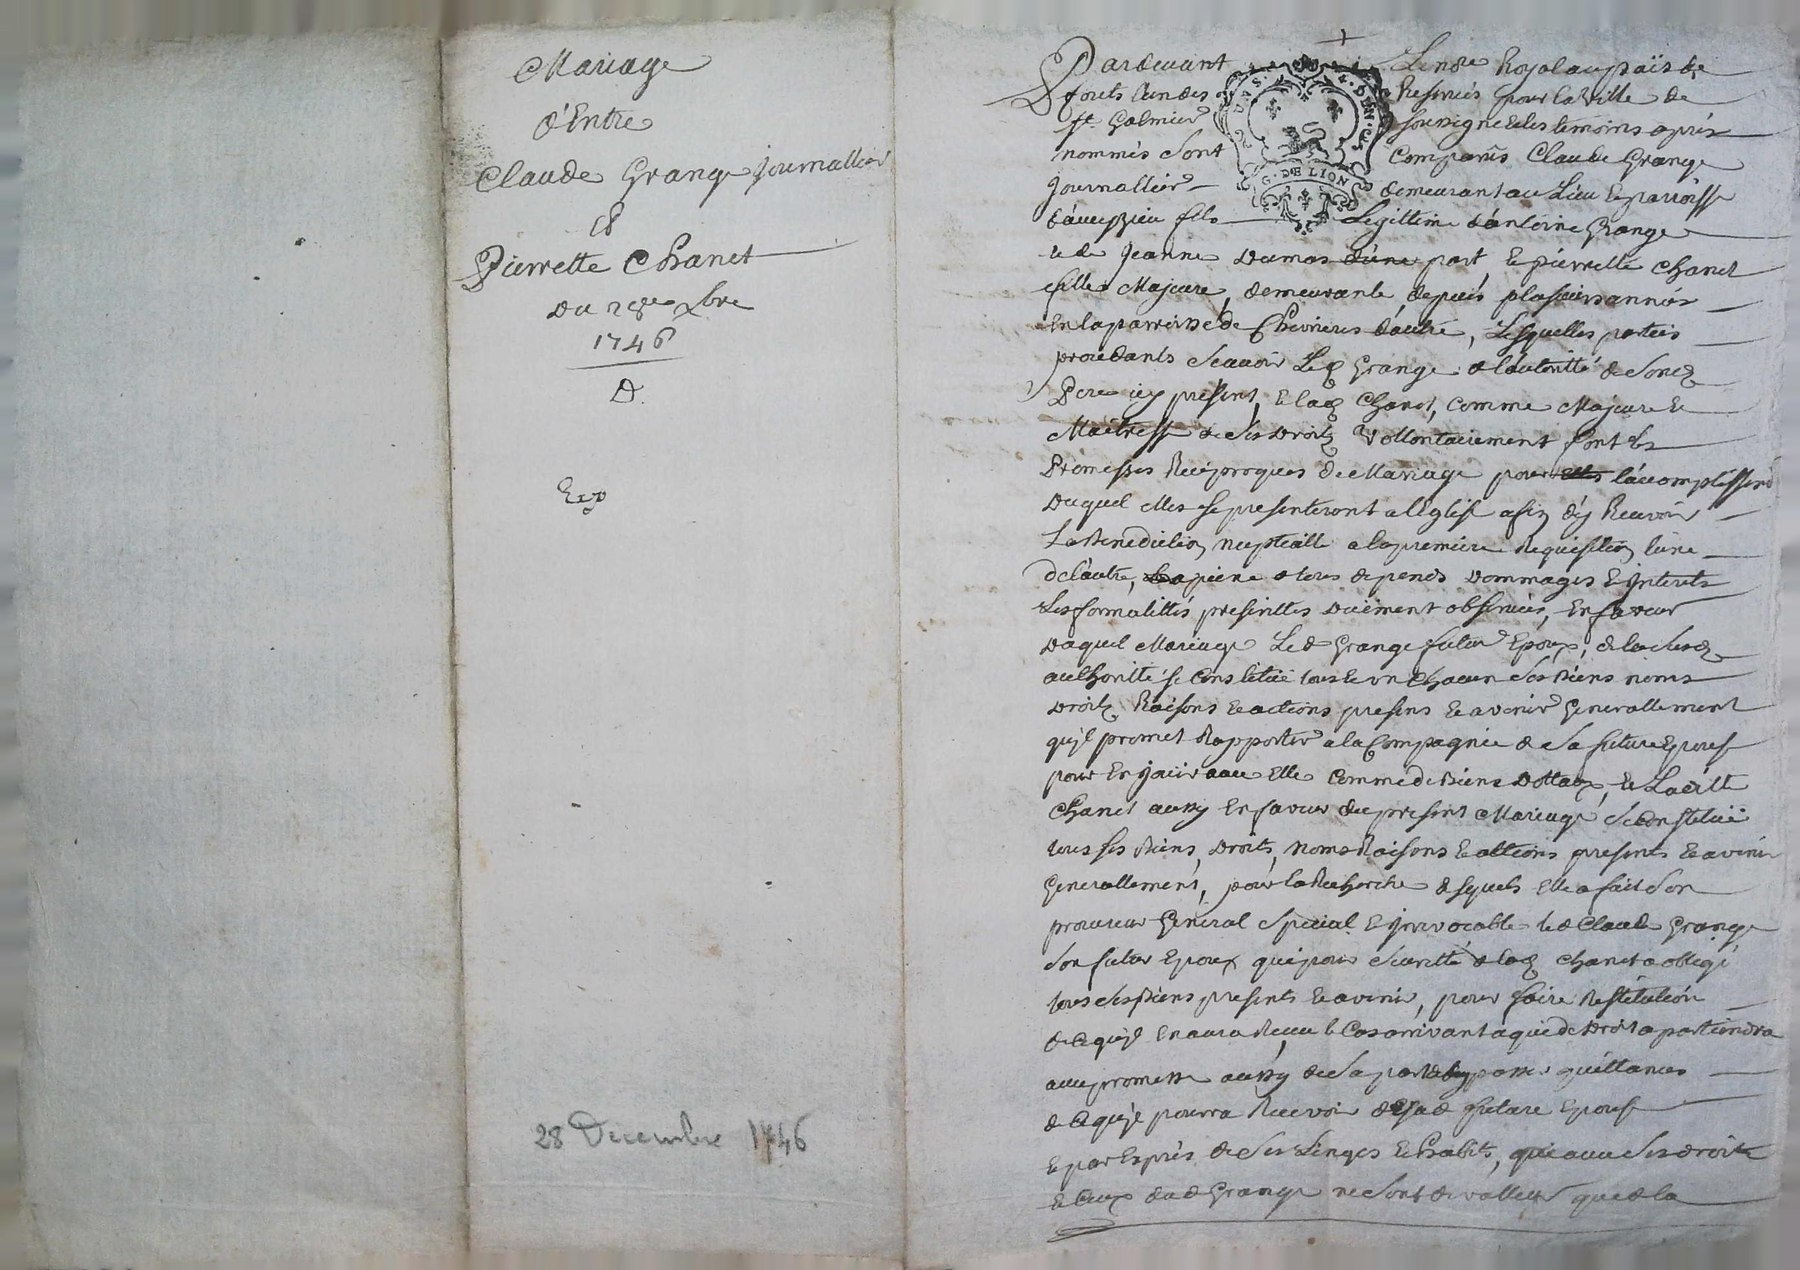 Mariage
d'Entre
Claude Grange journallier
&
Pierrette Chanet
Du 28e xbre
1746
D.
Exp
28 Decembre 1746
Pardevant Le nore Royal au païs de
forets l'un des Reservés pour la Ville de
St Galmier soussigné et les temoins aprés
nommés Sont Comparus Claude Grange
journallier demeurant au Lieu et parroisse
d'aveyzieu fils Legittime d'antoine Grange
et de Jeanne Dumas d'une part, et pierrette Chanet
fille Majeure, demeurante depuis plusieurs années
en la parroisse de Chevrieres d'autre, Lesquelles parties
procedants Scavoir Led Grange de l'autoritté de Sond
Pere icy present, et lad Chanet, Comme Majeure et
Maitresse de ses Droits Vollontairement font les
Promesses Reciproques de Mariage pour l'accomplissemt
Duquel elles se presenteront a l'Eglise afin d'y Recevoir
La Benediction nuptialle a la premiere Requisition l'une
de l'autre, a peine de tous depends Dommages et Interets
Les formalittés prescrittes Duëment observées, En faveur
Duquel Mariage Le d Grange futur Epoux, de la Susd
authoritté se Constitüe tous et un Chacun Ses Biens noms
Droits Raisons et actions presens et avenir Generallement
qu'il promet Rapporter a la Compagnie de Sa future Epouse
pour En joüir avec Elle Comme de Biens Dottaux, et Laditte
Chanet aussy En faveur du present Mariage se Constitüe
tous ses Biens, Droits, Noms Raisons et actions presents et avenir
Generallement, pour la Recherche desquels Elle a fait Son
procureur General Special et Irrevocable led Claude Grange
Son futur Epoux qui pour Seuretté de lad Chanet a obligé
tous Ses Biens presents et avenir, pour faire Restitution
de Ce qu'il En aura Receu le Cas arrivant a qui de Droit apartiendra
avec promesse aussy de Sa part de passer quittances
de Ce qu'il pourra Recevoir de Sad future Epouse
et par Exprés de Ses Linges et habits, qui avec Ses droits
et Ceux dud Grange ne Sont de valleur que de la
G. DE LION